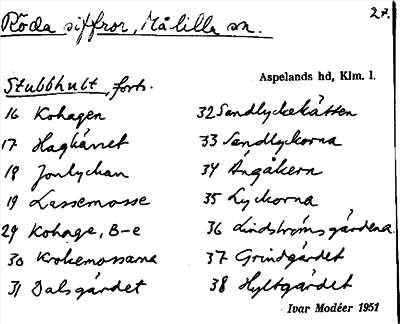 27.
Röda siffror, Målilla sn.
Aspelands hd, Klm. l.
Stubbhult, forts.
16 Kohagen
17 Hagkärret
18 Jonlyckan
19 Lassemosse
29 Kohage, B-e
30 Krokemossarna
31 Dalsgärdet
32 Sandlyckekätten
33 Sandlyckorna
34 Ängåkern
35 Lyckorna
36 Lindströmsgärdena
37 Grindgärdet
38 Hyltgärdet
Ivar Modéer 1951